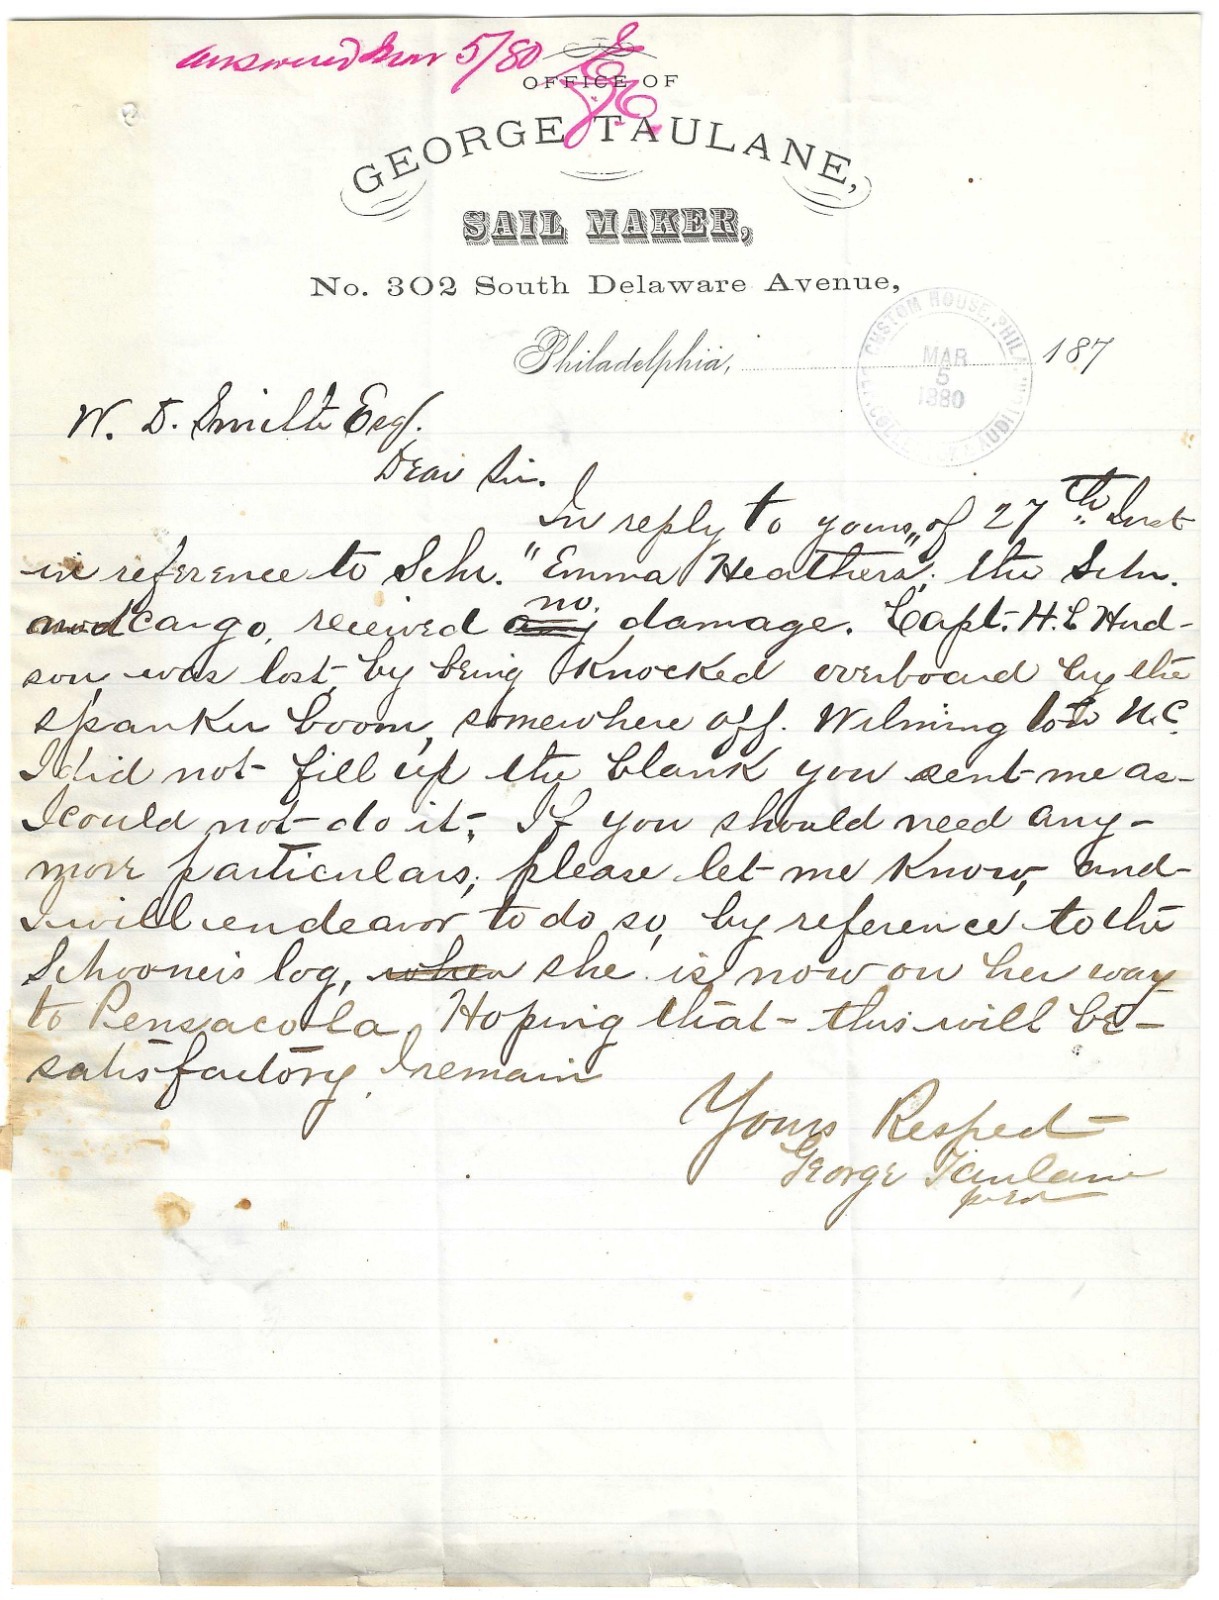 Answered Mar 5/80
OFFICE OF
GEORGE TAULANE,
SAIL MAKER,
No. 302 South Delaware Avenue,
Philadelphia, 187
CUSTOM HOUSE, PHILA
MAR
5
1880
W. D. Smith Esq.
Dear Sir.
In reply to yours, of 27th. Inst
in reference to Schr. "Emma Heathers", the Schr.
and cargo, received any no. damage. Capt. H. L Hud-
son, was lost, by being knocked overboard by the
spanker boom, somewhere off. Wilmington N.C.
I did not fill up the blank you sent me as
I could not do it, If you should need any-
more particulars, please let me know, and
I will endeavor to do so, by reference to the
Schooners log, when she is now on her way
to Pensacola, Hoping that this will be
satisfactory I remain
Yours Respect
George Taulane